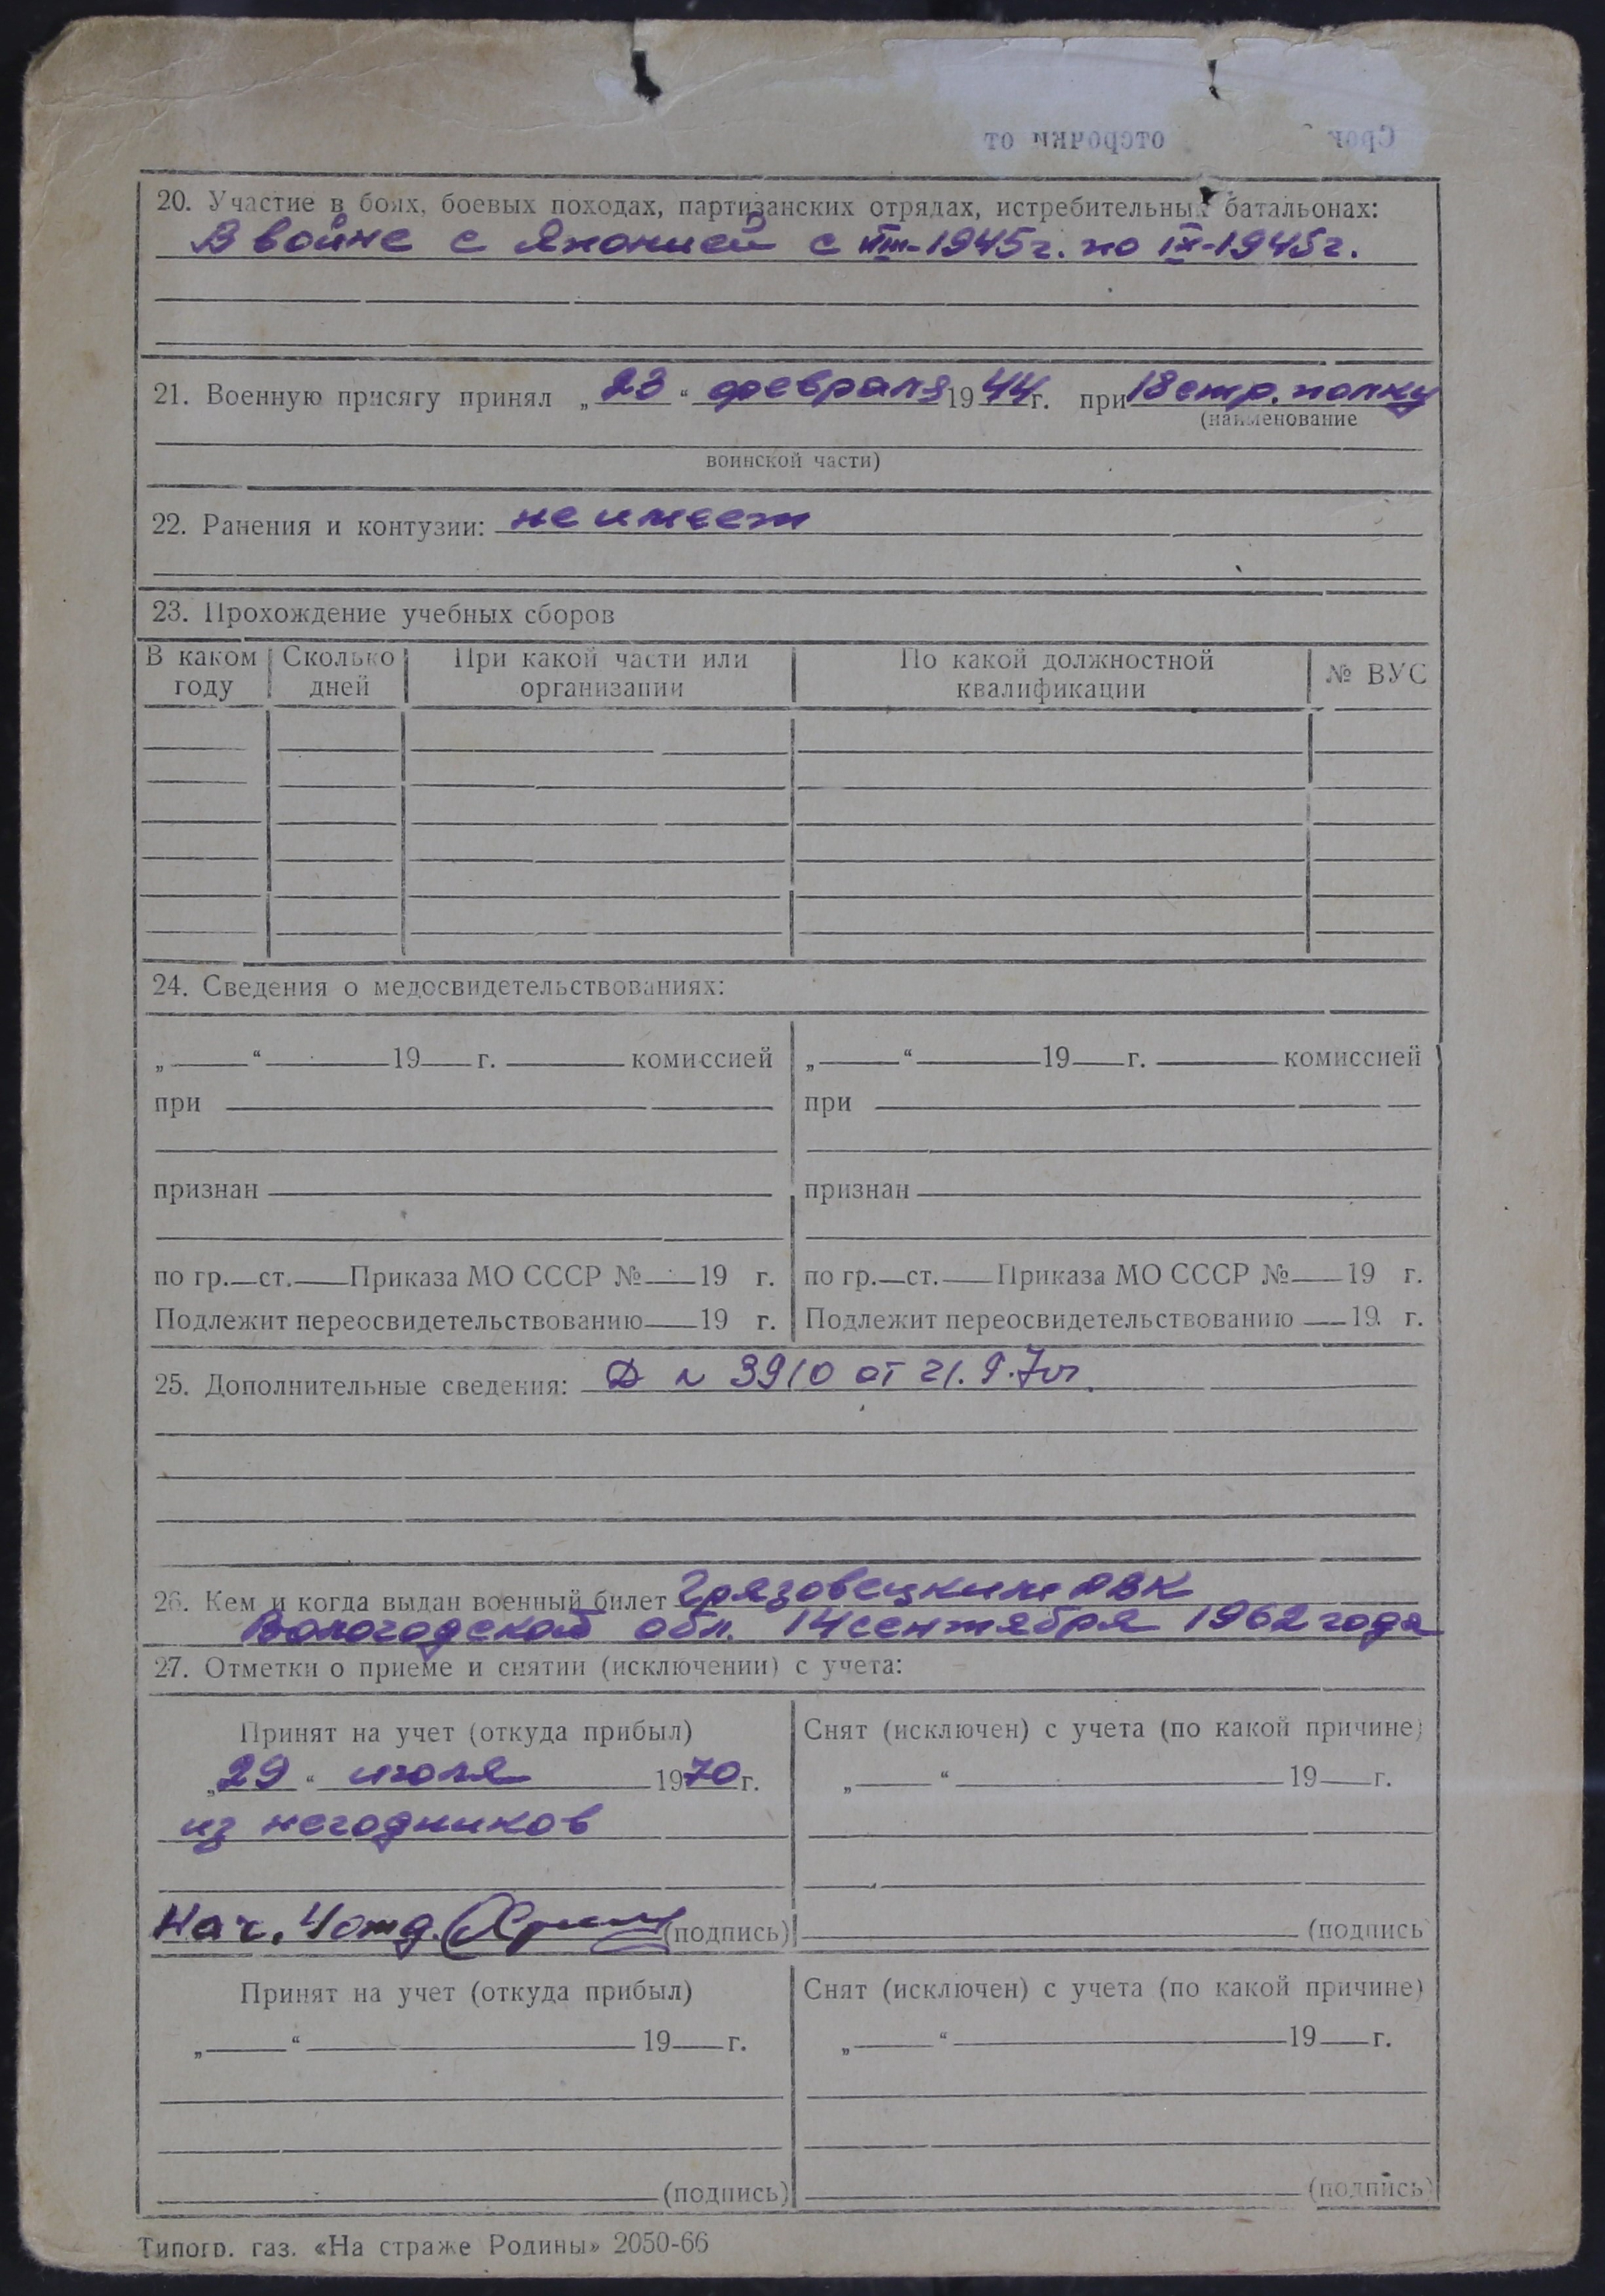 Срок отсрочки от
20. Участие в боях, боевых походах, партизанских отрядах, истребительных батальонах:
В войне с Японией с VIII-1945г. по IX-1945г.
21. Военную присягу принял „23“ февраля 1944г. при 18 стр. полку
(наименование
воинской части)
22. Ранения и контузии: не имеет
23. Прохождение учебных сборов
В каком году | Сколько дней | При какой части или организации | По какой должностной квалификации | № ВУС
24. Сведения о медосвидетельствованиях:
„ “ 19 г. комиссией „ “ 19 г. комиссией
при при
признан признан
по гр. ст. Приказа МО СССР № 19 г. по гр. ст. Приказа МО СССР № 19 г.
Подлежит переосвидетельствованию 19 г. Подлежит переосвидетельствованию 19 г.
25. Дополнительные сведения: Д № 3910 от 21.9.70г.
26. Кем и когда выдан военный билет Грязовецким РВК
Вологодской обл. 14 сентября 1962 года
27. Отметки о приеме и снятии (исключении) с учета:
Принят на учет (откуда прибыл) Снят (исключен) с учета (по какой причине)
„29“ июля 1970г. „ “ 19 г.
из негодников
Нач. 4 отд. (подпись) (подпись
Принят на учет (откуда прибыл) Снят (исключен) с учета (по какой причине)
„ “ 19 г. „ “ 19 г.
(подпись) (подпись)
Типогр. газ. «На страже Родины» 2050-66